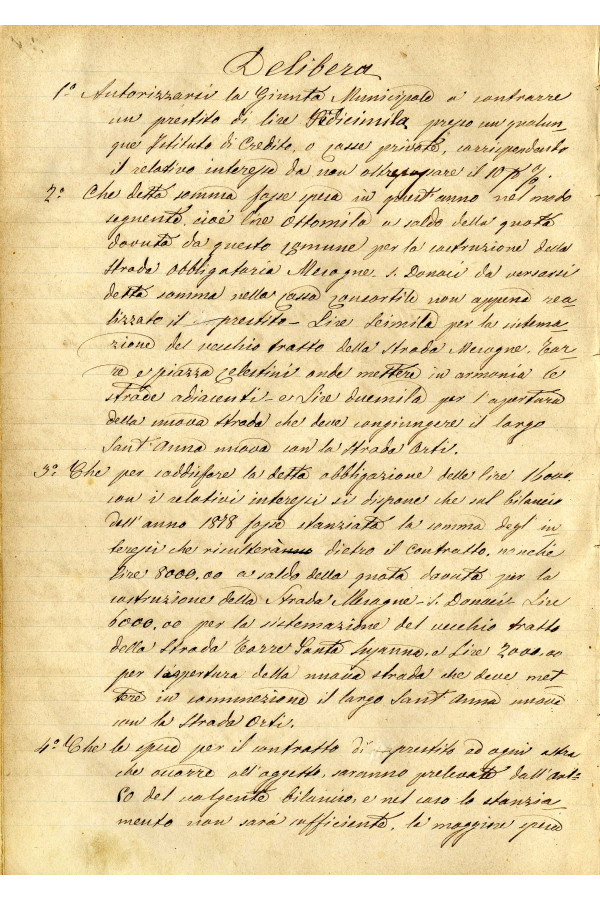 Delibera
1.° Autorizzarsi la Giunta Municipale a contrarre
un prestito di lire Sedicimila presso un qualun-
que Istituto di Credito, o casse private, corrispondendo
il relativo interesse da non oltrepassare il 10 p %.
2.° Che detta somma fosse spesa in quest'anno nel modo
seguente, cioè lire Ottomila a saldo della quota
dovuta da questo Comune per la costruzione della
Strada obbligatoria Mesagne-S. Donaci da versarsi
detta somma nella Cassa Consortile non appena rea-
lizzato il prestito - Lire Seimila per la sistema-
zione del vecchio tratto della Strada Mesagne-Tor-
re e piazza Celestini onde mettere in armonia le
strade adiacenti - e Lire duemila per l'apertura
della nuova strada che deve congiungere il largo
Sant'Anna nuova con la Strada Orti.
3.° Che per soddisfare la detta obbligazione delle lire 16000.
con i relativi interessi si dispone che sul bilancio
dell'anno 1878 fosse stanziata la somma degl'in-
teressi che risulterà dietro il contratto, nonchè
lire 8000,00 a saldo della quota dovuta per la
costruzione della Strada Mesagne-S. Donaci - Lire
6000,00 per la sistemazione del vecchio tratto
della Strada Torre Santa Susanna, e Lire 2000,00
per l'apertura della nuova strada che deve met-
tere in connessione il largo Sant'Anna nuova
con la Strada Orti.
4.° Che le spese per il contratto di prestito ed ogni altra
che occorre all'oggetto, saranno prelevate dall'
del volgente bilancio, e nel caso lo stanzia-
mento non sarà sufficiente, la maggiore spesa